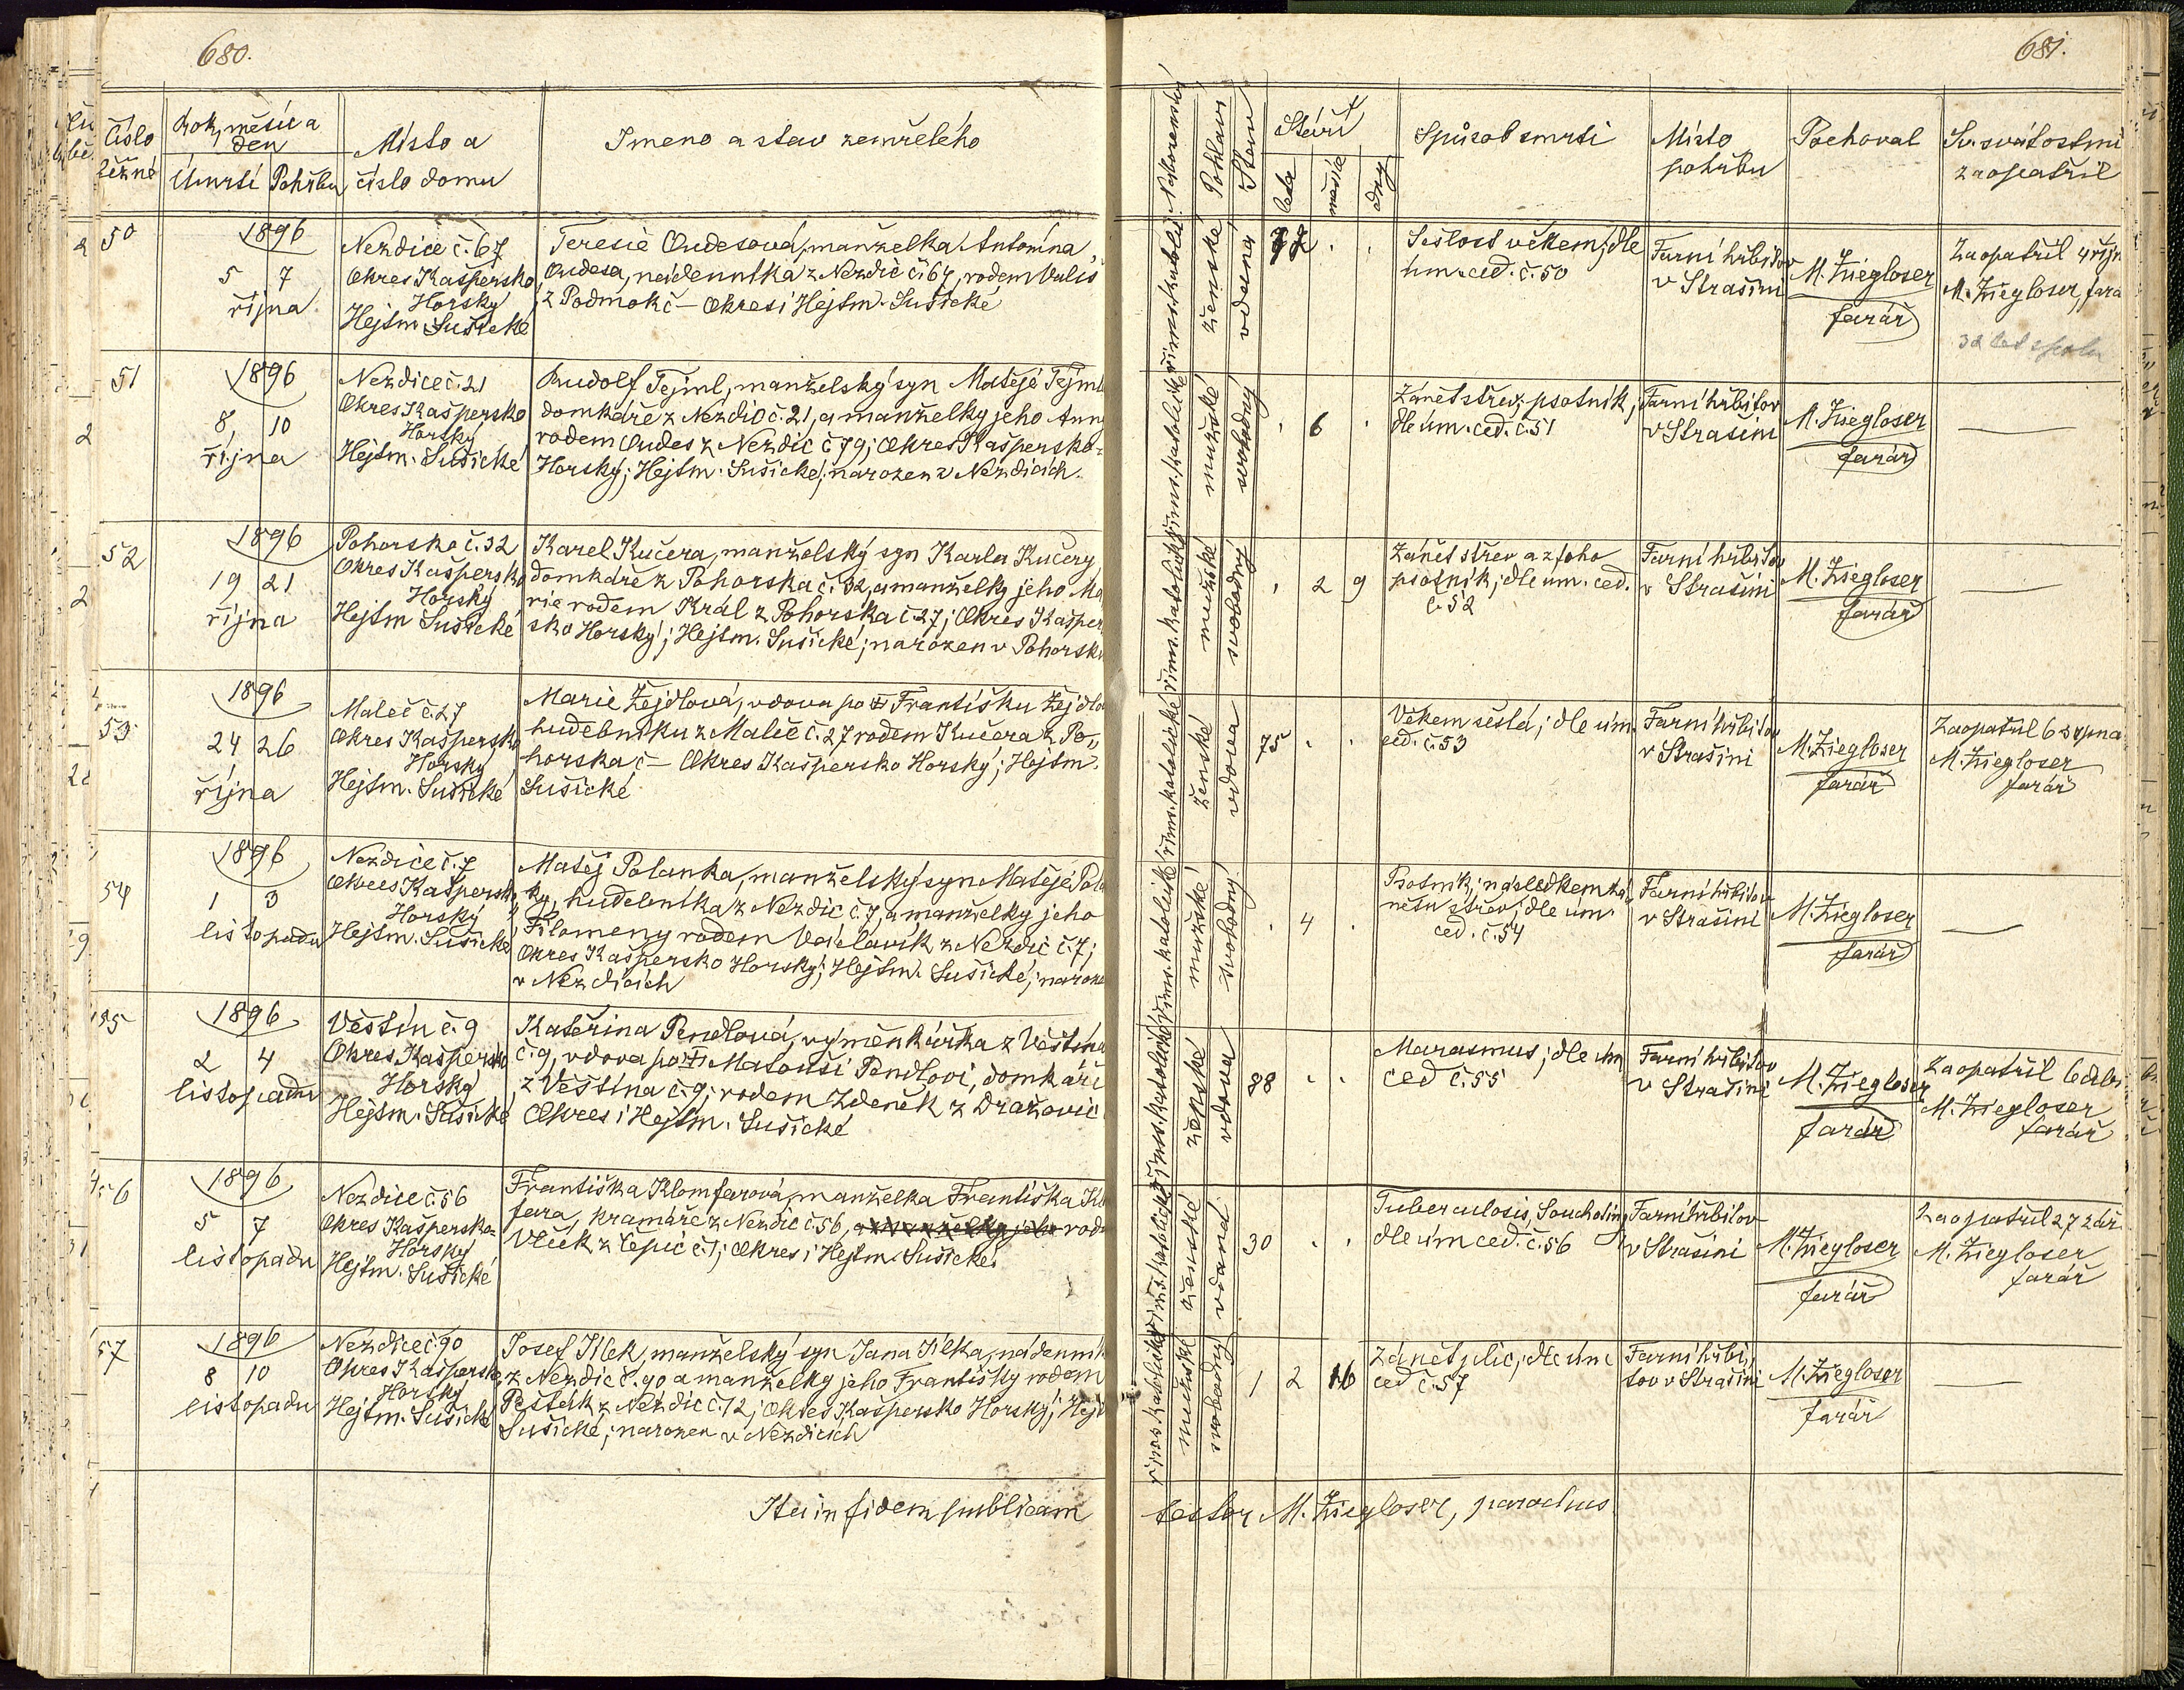 680.
Číslo
běžné
Rok, měsíc a
den
Úmrtí Pohřbu
Místo a
číslo domu
Jmeno a stav zemřelého
50
1896
5 7
října
Nezdice č. 67
Okres Kašpersko
Horský
Hejtm. Sušické
Teresie Oudesová, manželka Antonína
Oudesa, nádenníka z Nezdic č. 67, rodem Vuliš
z Podmokč – Okres i Hejtm. Sušické
51
1896
8, 10
října
Nezdice č. 21
Okres Kašpersko
Horský
Hejtm. Sušické
Rudolf Tejml, manželský syn Matěje Tejml
domkáře z Nezdic č. 21, a manželky jeho Anny
rodem Oudes z Nezdic č 79; Okres Kašpersko-
Horský; Hejtm. Sušické; narozen v Nezdicích.
52
1896
19 21
října
Pohorsko č. 32
Okres Kašpersko
Horský
Hejtm Sušické
Karel Kučera, manželský syn Karla Kučery
domkáře z Pohorska č. 32, a manželky jeho Ma
rie rodem Král z Pohorska č 27; Okres Kašper
sko Horský; Hejtm. Sušické; narozen v Pohorsku
53
1896
24 26
října
Maleč č. 27
Okres Kašpersko
Horský
Hejtm. Sušické
Marie Žejdlová, vdova po Františku Žejdlo
hudebníku z Malče č. 27 rodem Kučera z Po„
horska č – Okres Kašpersko Horský; Hejtm.
Sušické
54
1896
1 3
listopadu
Nezdice č. 7
Okres Kašpersko
Horský
Hejtm. Sušické
Matěj Polanka, manželský syn Matěje Pola
ky, hudebníka z Nezdic č. 7, a manželky jeho
Filomeny rodem Václavík z Nezdic č. 7;
Okres Kašpersko Horský; Hejtm. Sušické; naroze
v Nezdicích
55
1896
2 4
listopadu
Věštín č. 9
Okres Kašpersko
Horský
Hejtm. Sušické
Kateřina Pendlová, výměnkářka z Věštína
č. 9, vdova po Matouši Pendlovi, domkáři
z Věštína č. 9; rodem Zdeněk z Dražovic
Okres i Hejtm. Sušické
56
1896
5 7
listopadu
Nezdice č. 56
Okres Kašpersko-
Horský
Hejtm. Sušické
Františka Klomfarová, manželka Františka Klom
fara, kramáře z Nezdic č 56, a manželky jeho rode
Vlček z Čepic č. 1; Okres i Hejtm. Sušické.
57
1896
8 10
listopadu
Nezdice č. 90
Okres Kašpersko
Horský
Hejtm. Sušické
Josef Jílek, manželský syn Jana Jílka, nádenník
z Nezdic č. 90 a manželky jeho Františky rodem
Pešták z Nezdic č. 12; Okres Kašpersko Horský; Hejt
Sušické; narozen v Nezdicích
Ita in fidem publicam
681.
Náboženství
Pohlaví
Stav
Stáří
léta
měsíce
dny
Spůsob smrti
Místo
pohřbu
Pochoval
Sv. svátostmi
zaopatřil
ženské
vdaná
72 . .
Sešlost věkem; dle
úm. ced. č. 50
Farní hřbitov
v Strašíni
M. Ziegloser
farář
Zaopatřil 4 říjn
M. Ziegloser, fara
32 let spolu
říms. katolické
mužské
svobodný
. 6 .
Zánět střev, psotník;
dle úm. ced. č. 51
Farní hřbitov
v Strašíni
M. Ziegloser
farář
říms. katolické
mužské
svobodný
. 2 9
Zánět střev a z toho
psotník; dle úm. ced.
č. 52
Farní hřbitov
v Strašíni
M. Ziegloser
farář
říms. katolické
ženské
vdova
75 . .
Věkem sešlá; dle úm.
ced. č. 53
Farní hřbitov
v Strašíni
M. Ziegloser
farář
Zaopatřil 6 srpna
M. Ziegloser
farář
říms. katolické
mužské
svobodný
. 4 .
Psotník; následkem zá
nětu střev; dle úm.
ced. č. 54
Farní hřbitov
v Strašíni
M. Ziegloser
farář
říms. katolické
ženské
vdova
88 . .
Marasmus; dle úm
ced č. 55
Farní hřbitov
v Strašíni
M. Ziegloser
farář
Zaopatřil
M. Ziegloser
farář
říms. katolické
ženské
vdaná
30 . .
Tuberculosis, Souchotiny
dle úm ced. č. 56
Farní hřbitov
v Strašíni
M. Ziegloser
farář
Zaopatřil 27 září
M. Ziegloser
farář
říms. katolické
mužské
svobodný
1 2 16
Zánět plic; dle úm
ced č. 57
Farní hřbi„
tov v Strašíni
M. Ziegloser
farář
testor M. Ziegloser, parochus.